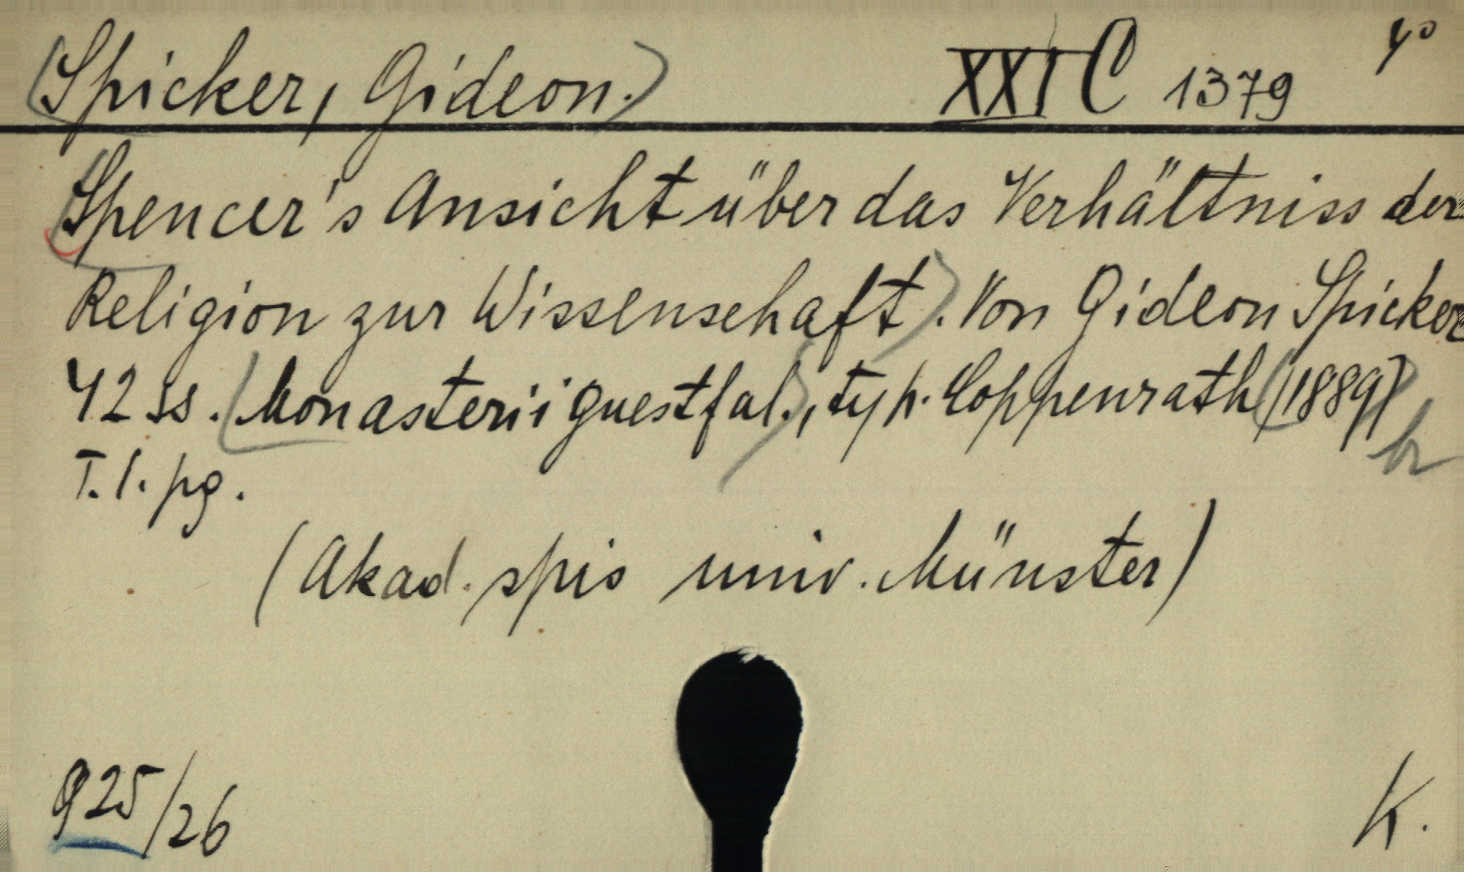 (Spicker, Gideon.) XXI C 1379 4°
(Spencer's Ansicht über das Verhältniss der
Religion zur Wissenschaft). Von Gideon Spicker
42 ss. (Monasterii guestfal.), typ. Coppenrath (1889)
br
T. 1. pg.
(Akad. spis univ. Münster)
925/26 K.